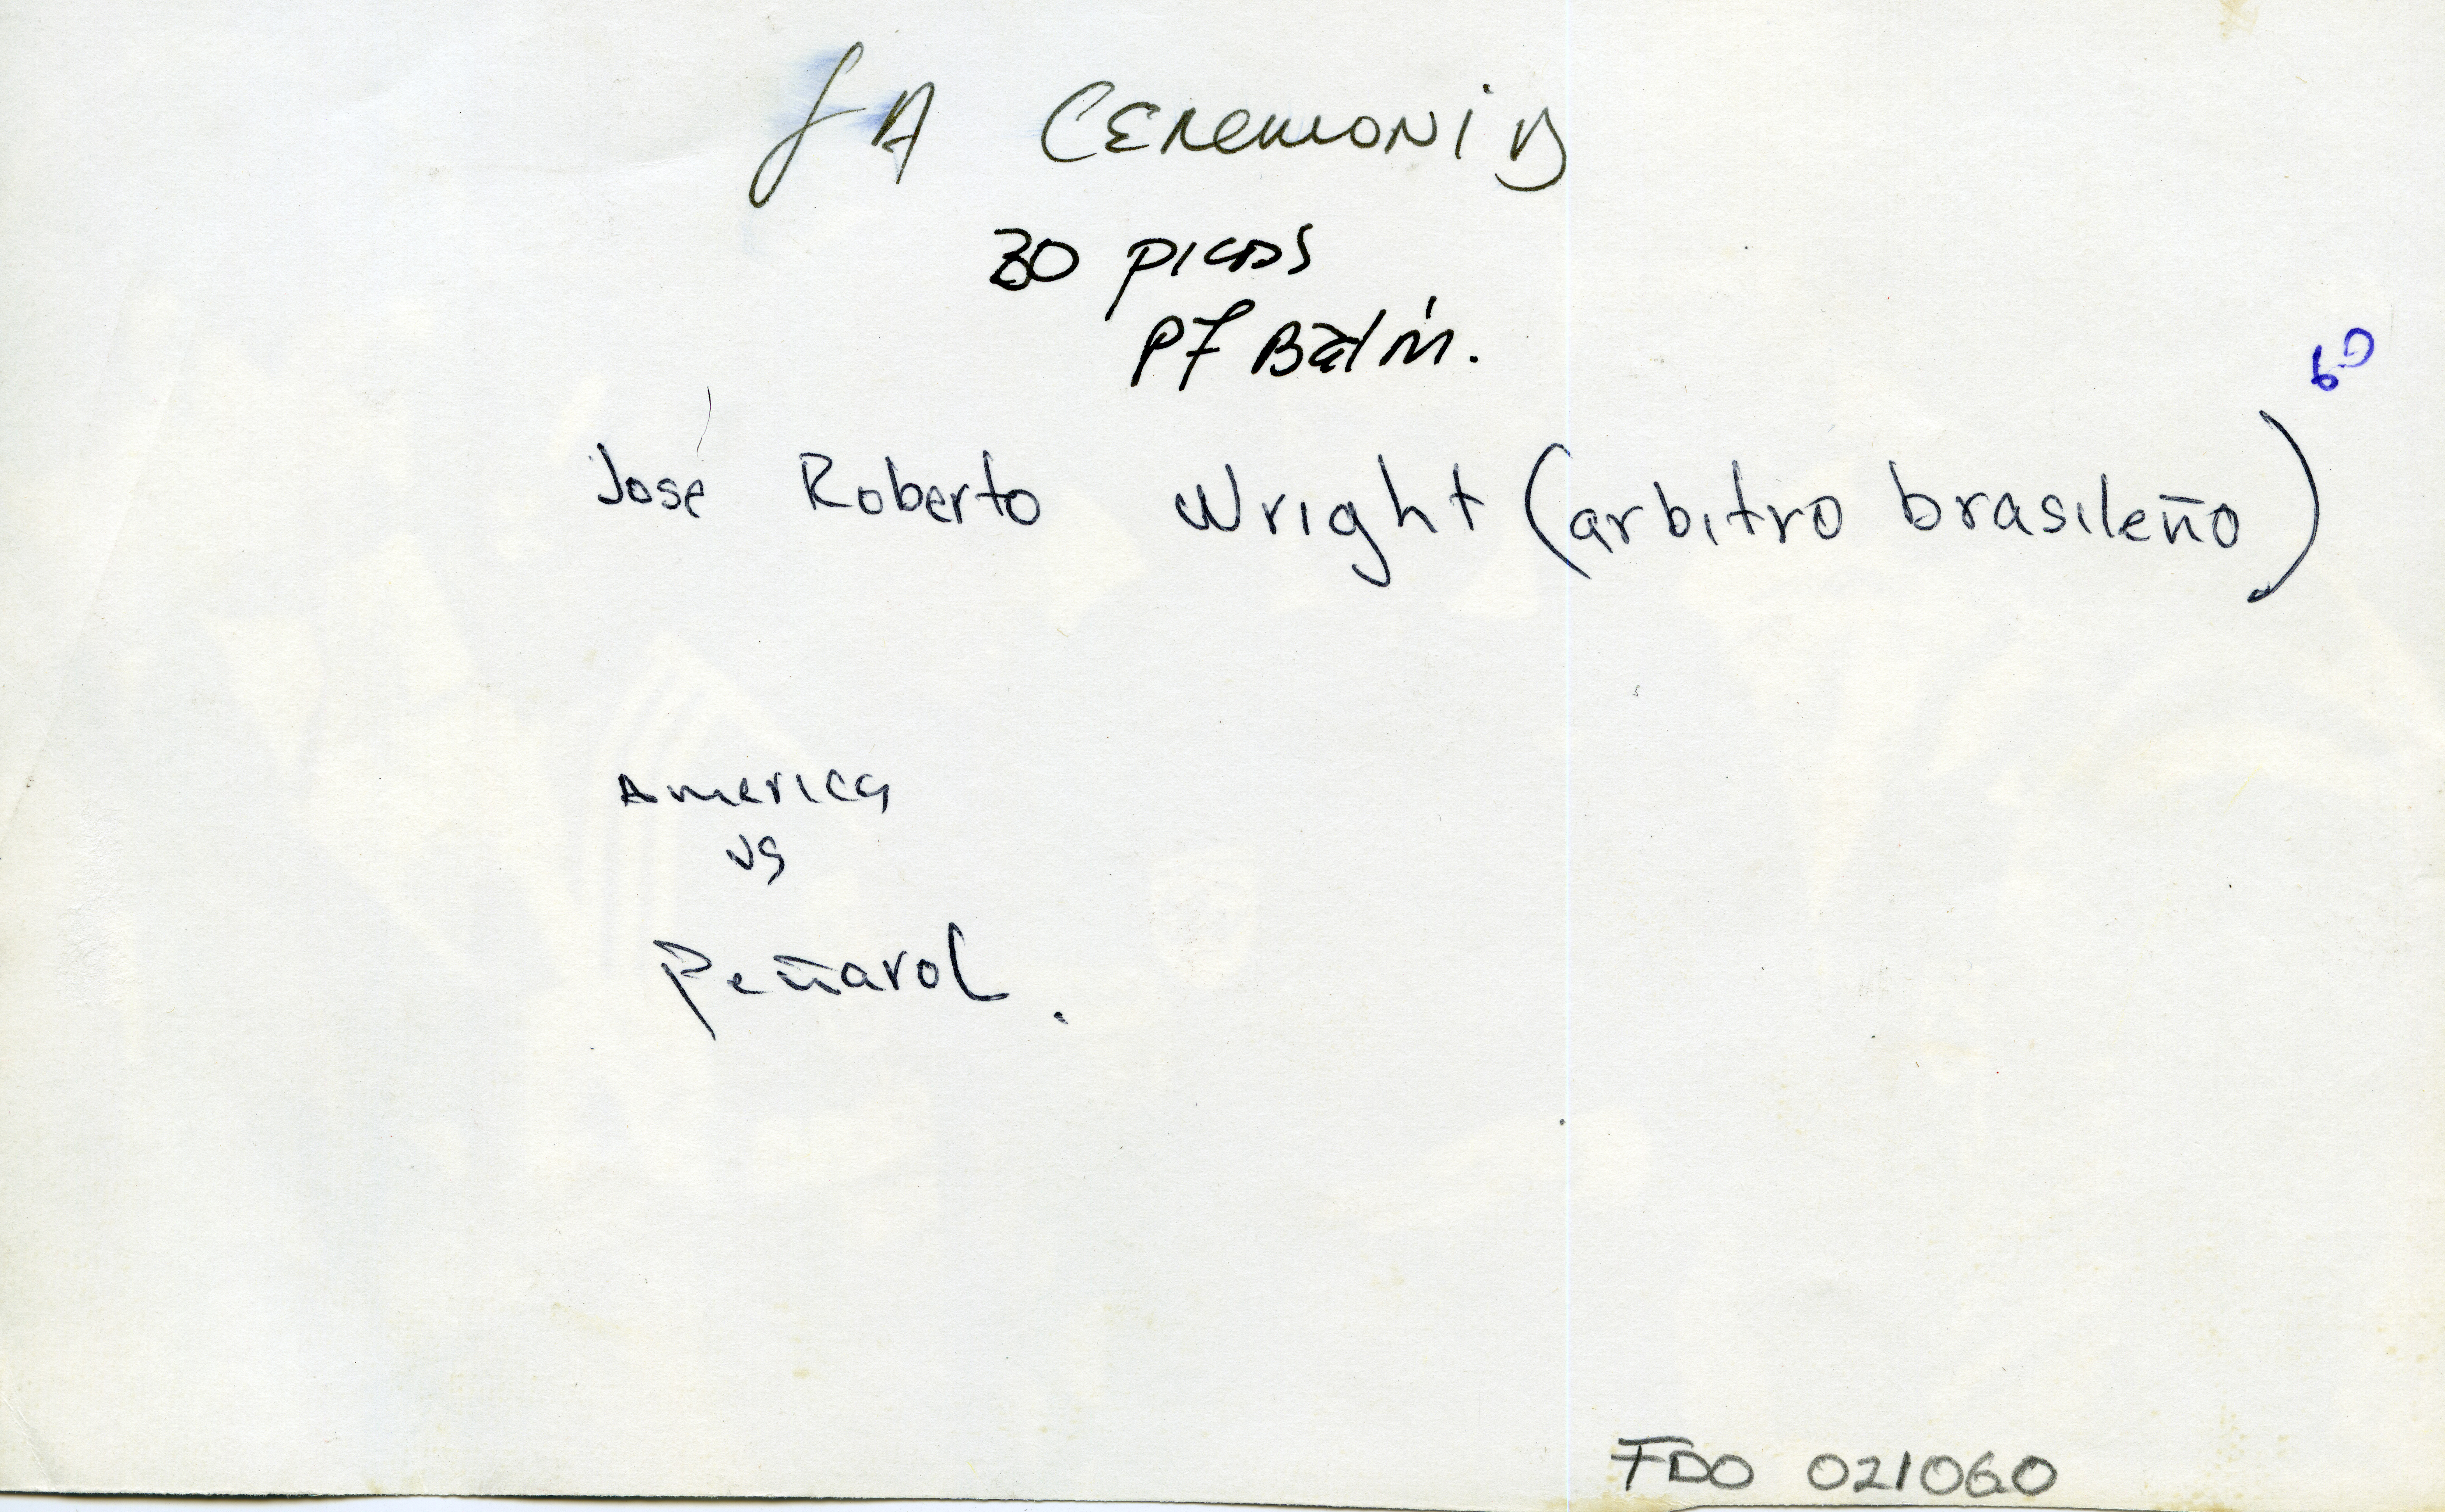 LA CEREMONIA
30 picas
PF Balín.
60
José Roberto Wright (arbitro brasileño)
America
vs
Peñarol.
FDO 021060